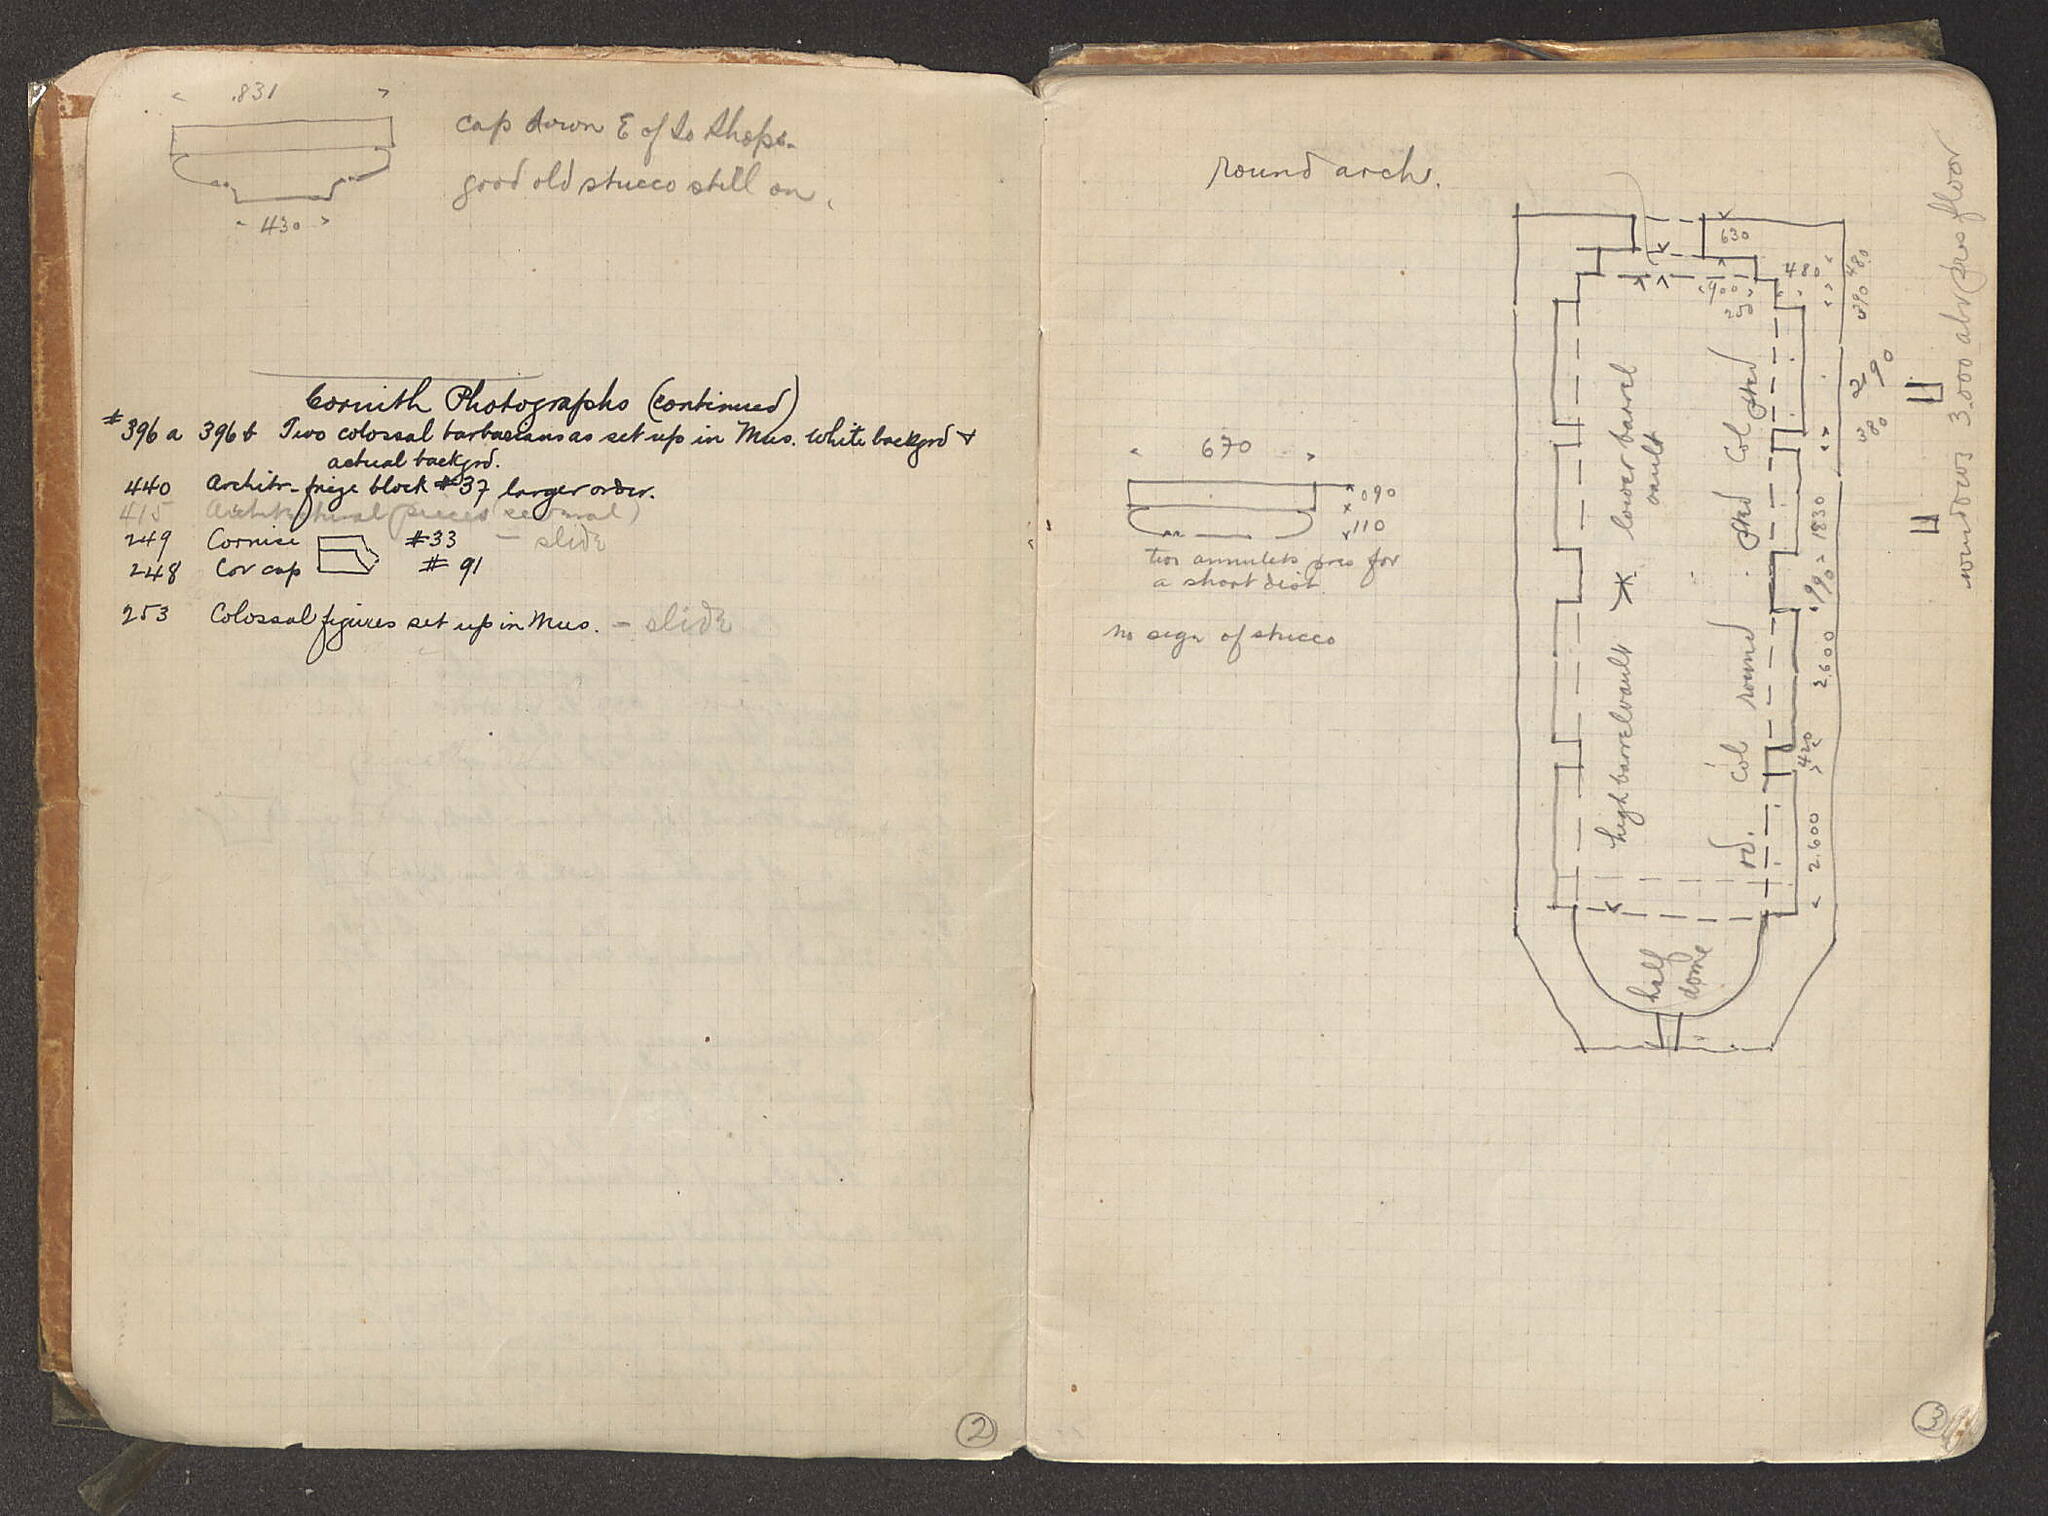 .831
cap down E of So Shops.
good old stucco still on.
430
Corinth Photographs (continued)
#396 a 396 b Two colossal barbarians as set up in Mus. white backgrd +
actual backgrd.
440 Archtr-frieze block #37 larger order.
415 Architectural pieces (several)
249 Cornice #33 – slide
248 Cor cap #91
253 Colossal figures set up in Mus. – slide
2
round arch.
670
.090
.110
two annulets pres for
a short dist.
no sign of stucco
630
480
900
250
480
390
290
380
1830
990
2.600
420
2.600
lower barrel
vault
high barrel vault
sted col sted
rd. col round
half
dome
windows 3.000 abv pres floor
3